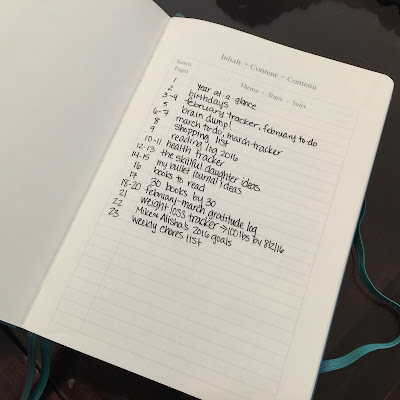 Inhalt · Content · Contenu
Seiten
Pages
Thema · Topic · Sujet
1 Year at a glance
2 birthdays
3-4 february tracker, february to-do
5 brain dump!
6-7 march to-do, march tracker
8 shopping list
9 reading log 2016
10-11 health tracker
12-13 the skillful daughter ideas
14-15 my bullet journal ideas
16 books to read
17 30 books by 30
18-20 february-march gratitude log
21 weight loss tracker → 100 lbs by 8/2/16
22 Mike & Alisha's 2016 goals
23 weekly chores list